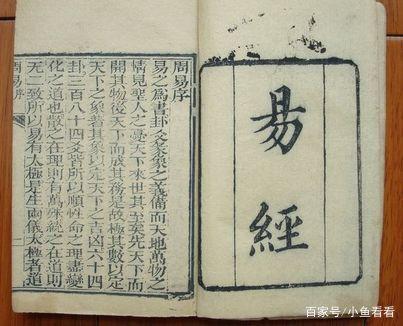 易經
周易序
易之為書卦爻彖象之義備而天地萬物之
情見聖人之憂天下來世其至矣先天下而
開其物後天下而成其務是故極其數以定
天下之象著其象以定天下之吉凶六十四
卦三百八十四爻皆所以順性命之理盡變
化之道也散之在理則有萬殊統之在道則
无二致所以易有太極是生兩儀太極者道
周易序
百家号/小鱼看看